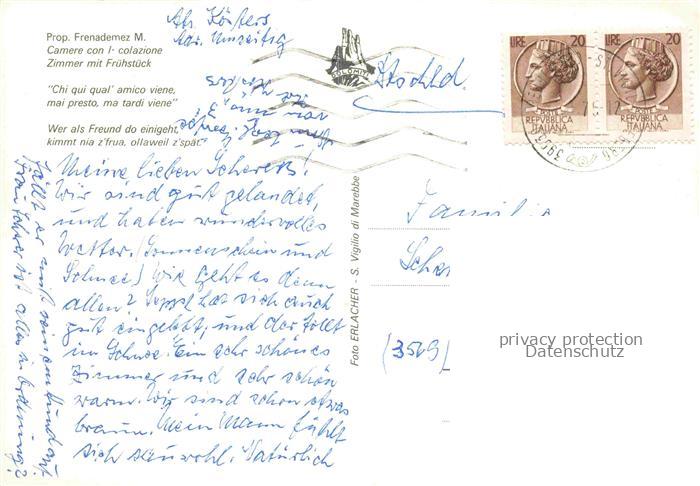 Prop. Frenademez M.
Camere con I· colazione
Zimmer mit Frühstück
"Chi qui qual' amico viene,
mai presto, ma tardi viene"
Wer als Freund do einigeht,
kimmt nia z'frua, ollaweil z'spät."
Abs. Kösters
DOLOMITI
Deutschld
LIRE 20
LIRE 20
POSTE
REPVBBLICA
ITALIANA
POSTE
REPVBBLICA
ITALIANA
Meine lieben Scherers!
Wir sind gut gelandet,
und haben wundervolles
Wetter. (Sonnenschein und
Schnee) Wie geht es denn
allen? Seppl hat sich auch
gut eingelebt, und der tollt
im Schnee. Ein sehr schönes
Zimmer und sehr schön
warm. Wir sind schon etwas
braun. Mein Mann fühlt
sich sauwohl. Natürlich
fällt er mit seinem Hund auf.
ist alles in Ordnung?
Foto ERLACHER - S. Vigilio di Marebbe
Familie
Scher
(3549)
privacy protection
Datenschutz